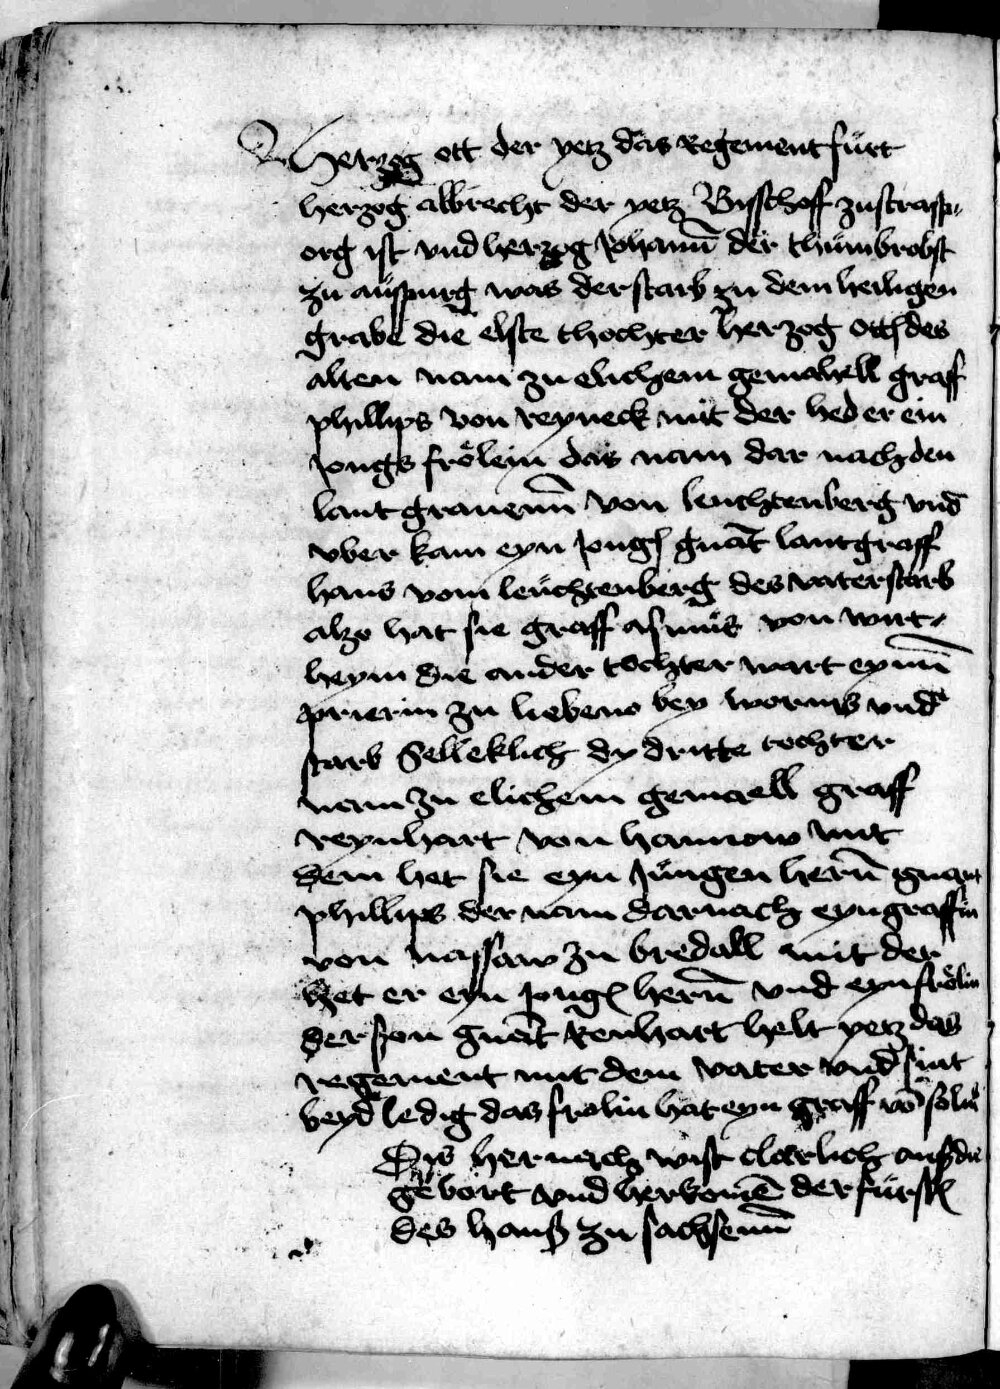 Herzog ott der yetz das Regement fürt
herzog albrecht der yetz Bisschoff zu strasp-
org ist vnd herzog Johann der thumbrobst
zu auspurg was der starb zu dem heiligen
grabe die elste thochter herzog otth des
alten nam zu elichem gemahell graf
phillips von reyneck mit der hed er ein
Jongs frölein das nam dar nach den
lantgrauenn von leuchtenberg vnd
vber kam eyn Jong gnant lantgraff
hans vom leuchtenberg des vater starb
alzo hat sie graff asmus von wirt-
heym die ander tochter wart eynn
prierin zu liebeno bey worms vnd
starb Selleklich dy dritte tochter
nam zu elichem gemaell graff
reynhart von hannow mit
dem het sie eyn Jungen hern gnant
phillips der nam darnach eyn graffin
von nassaw zu bredall mit der
het er eyn Jong hern vnd eyn frölin
der son gnant Renhart helt yetz das
regement mit dem vater vnd sint
beyd ledig das frolin hat eyn graff vo solm
Dis hernach wist clarlich auß die
gebort vnd herkomen der fürst
des hauß zu sachsenn